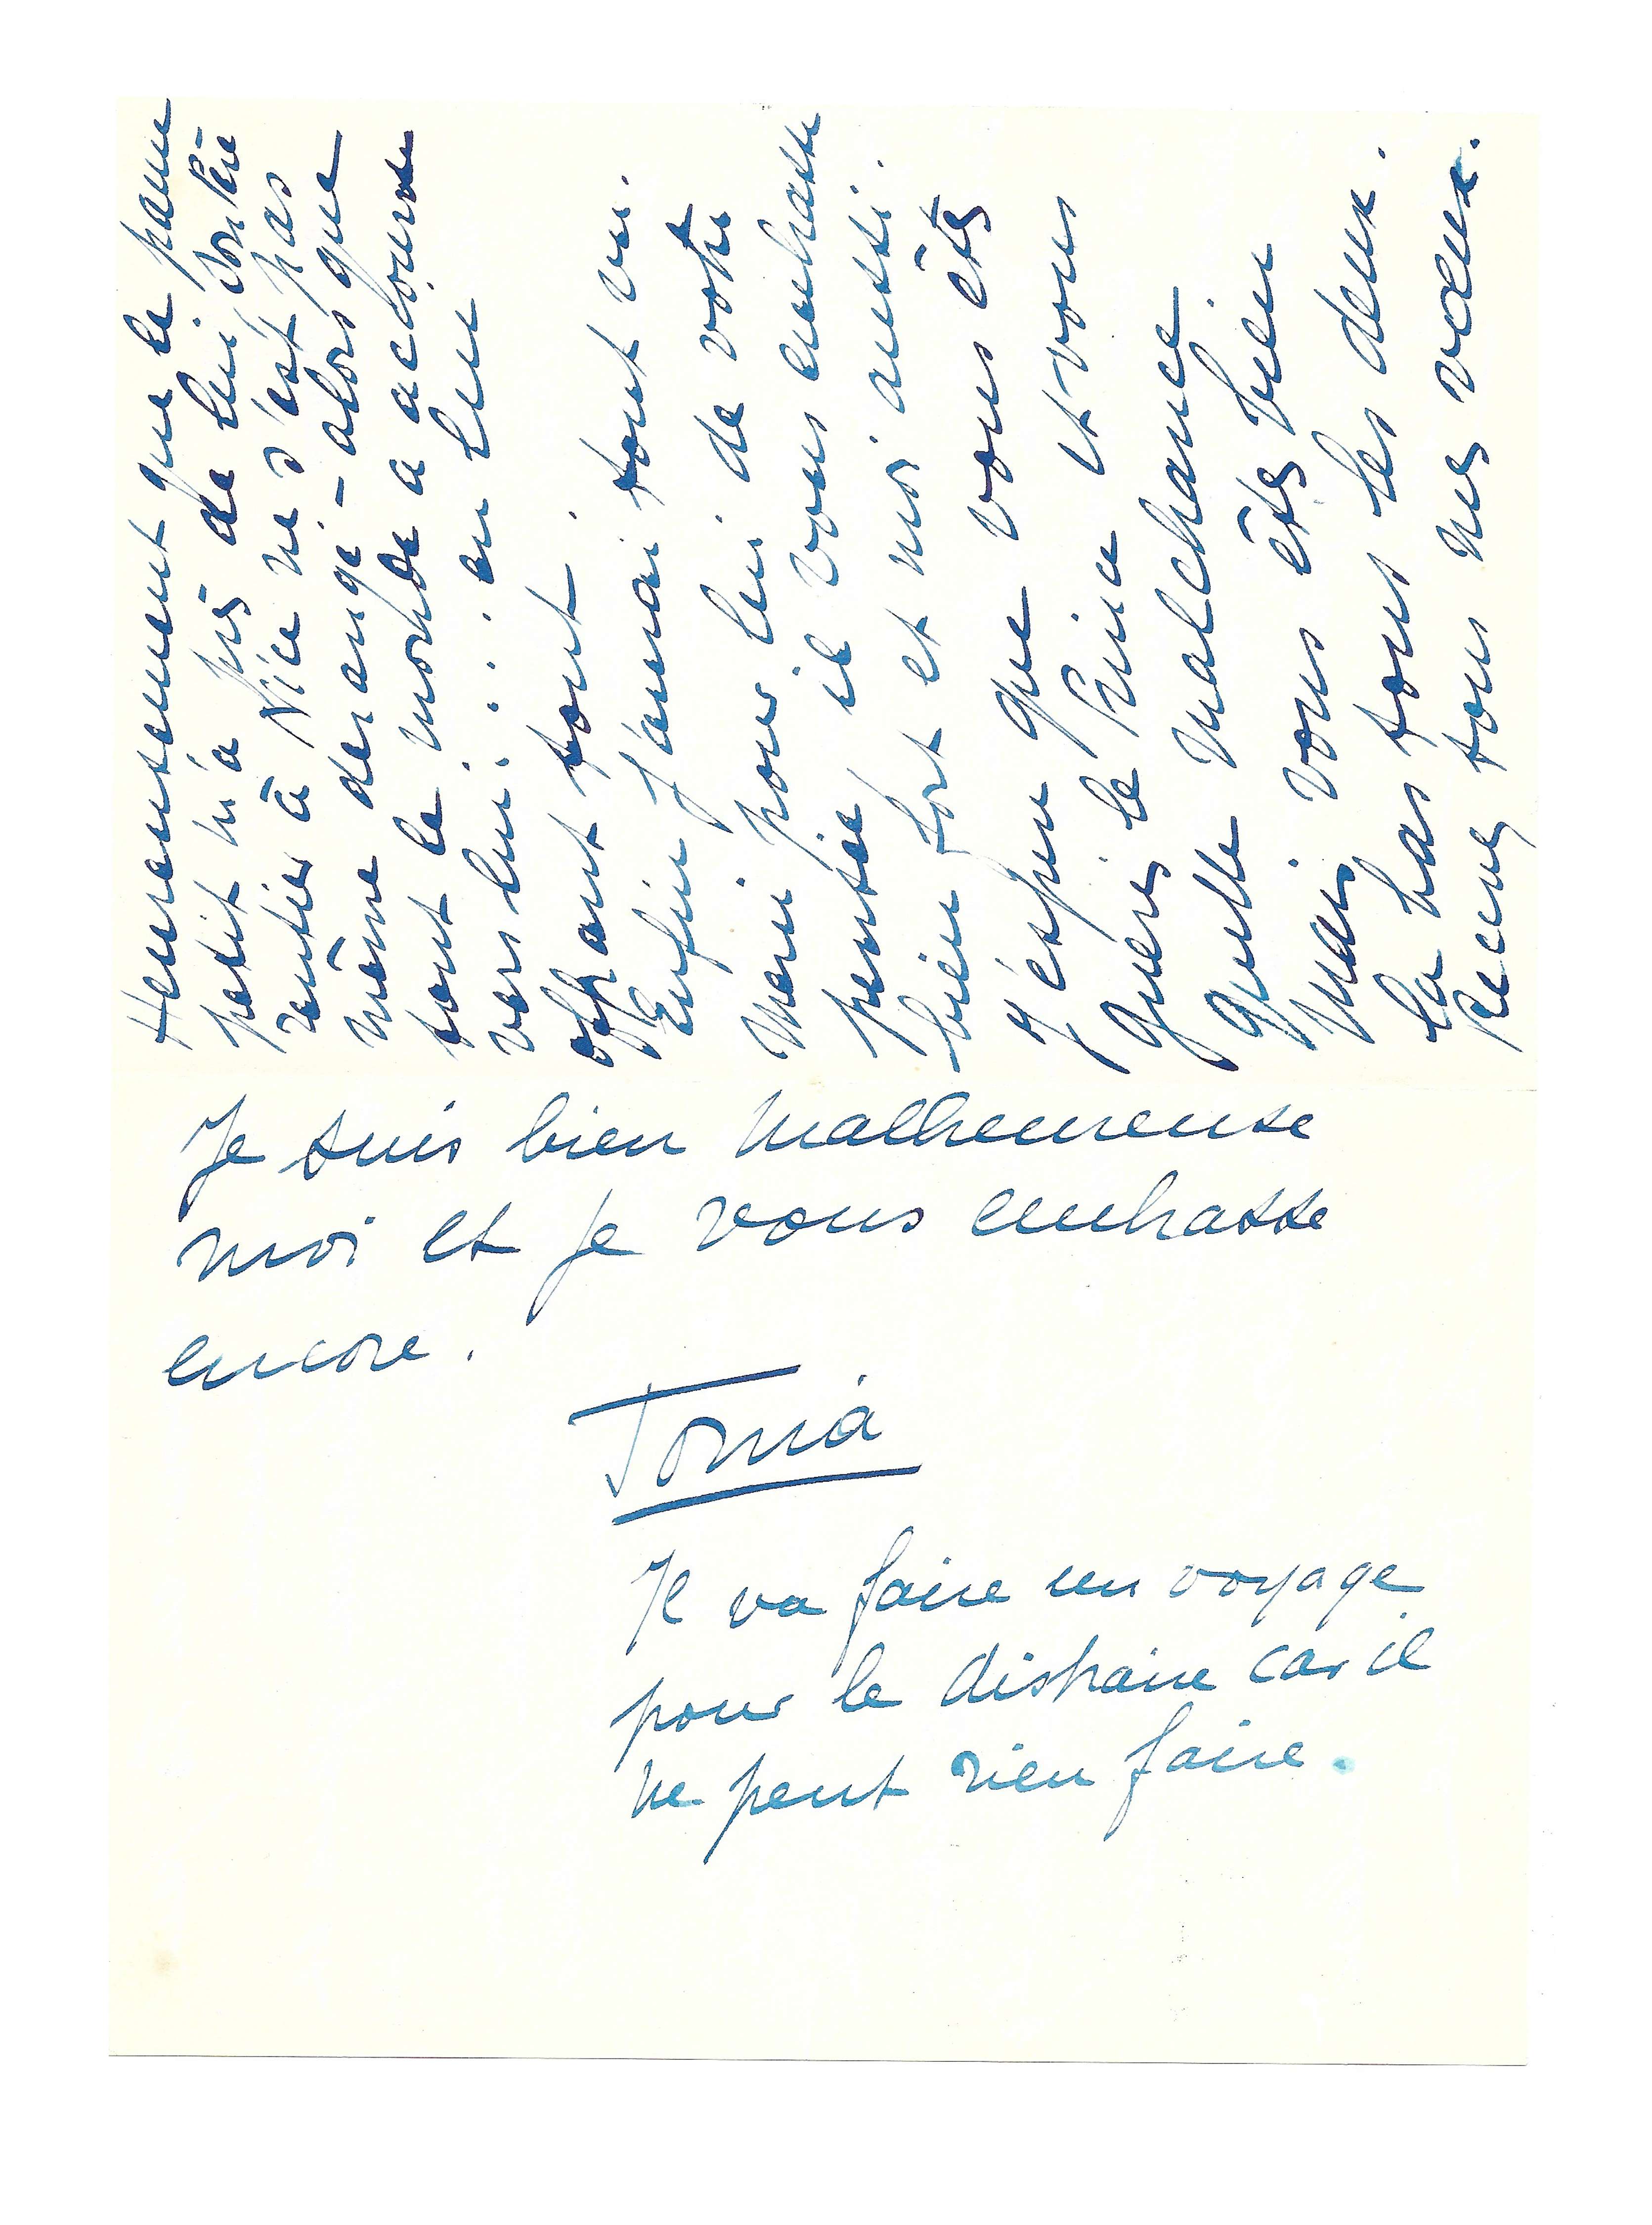 Heureusement que le pauvre
petit n'a pas de lui
rentier à Nice ne s'est pas
même dérangé - alors que
tout le monde a accouru
vers lui . . . . en lui
offrant tout.
Enfin j'aurai tout vu.
Merci pour lui de votre
pensée il vous embrasse
bien fort et moi aussi.
J'espère que vous êtes
guéris le Prince et vous
quelle malchance.
Mais vous êtes bien
là bas tous les deux.
Recevez tous nos vœux.
Je suis bien malheureuse
moi et je vous embrasse
encore.
Tonia
Il va faire un voyage
pour le distraire car il
ne peut rien faire.